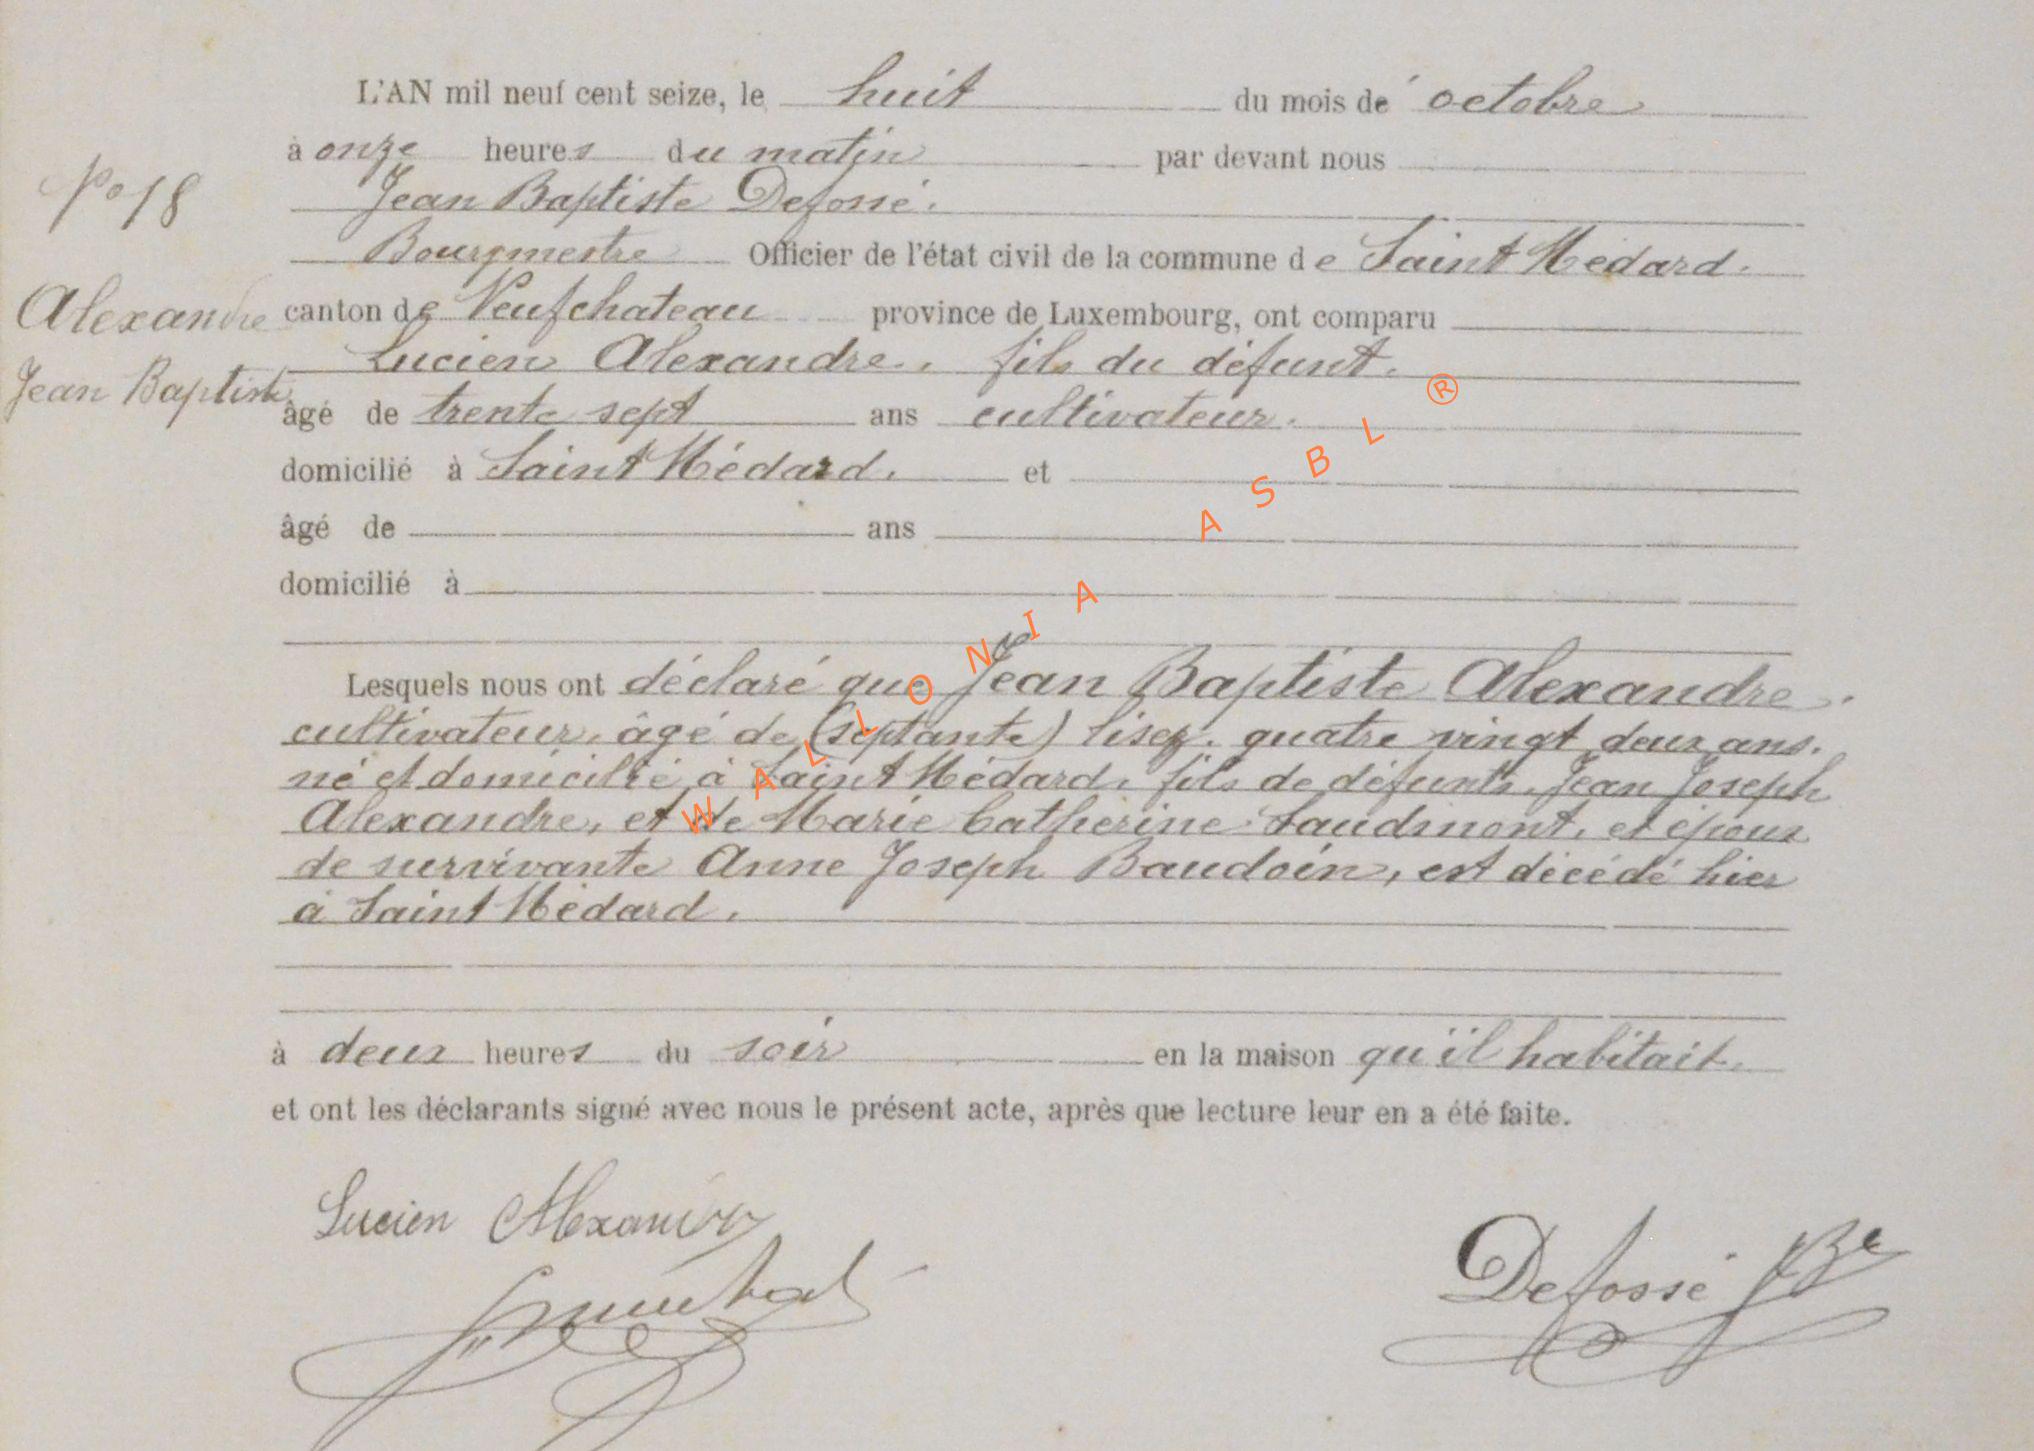 L'AN mil neuf cent seize, le huit du mois de octobre
à onze heures du matin par devant nous
Jean Baptiste Defossé.
Bourgmestre Officier de l'état civil de la commune de Saint Médard.
N° 18
Alexandre
Jean Baptiste
canton de Neufchateau province de Luxembourg, ont comparu
Lucien Alexandre. fils du défunt.
âgé de trente sept ans cultivateur.
domicilié à Saint Médard. et
âgé de ans
domicilié à
Lesquels nous ont déclaré que Jean Baptiste Alexandre.
cultivateur, âgé de (septante) lisez. quatre vingt deux ans.
né et domicilié à Saint Médard, fils de défunts, Jean Joseph
Alexandre, et de Marie Catherine Saudmont, et époux
de survivante Anne Joseph Baudoin, est décédé hier
à Saint Médard.
à deux heures du soir en la maison qu'il habitait.
et ont les déclarants signé avec nous le présent acte, après que lecture leur en a été faite.
Lucien Alexandre
Defossé JBte
WALLONIA ASBL ®